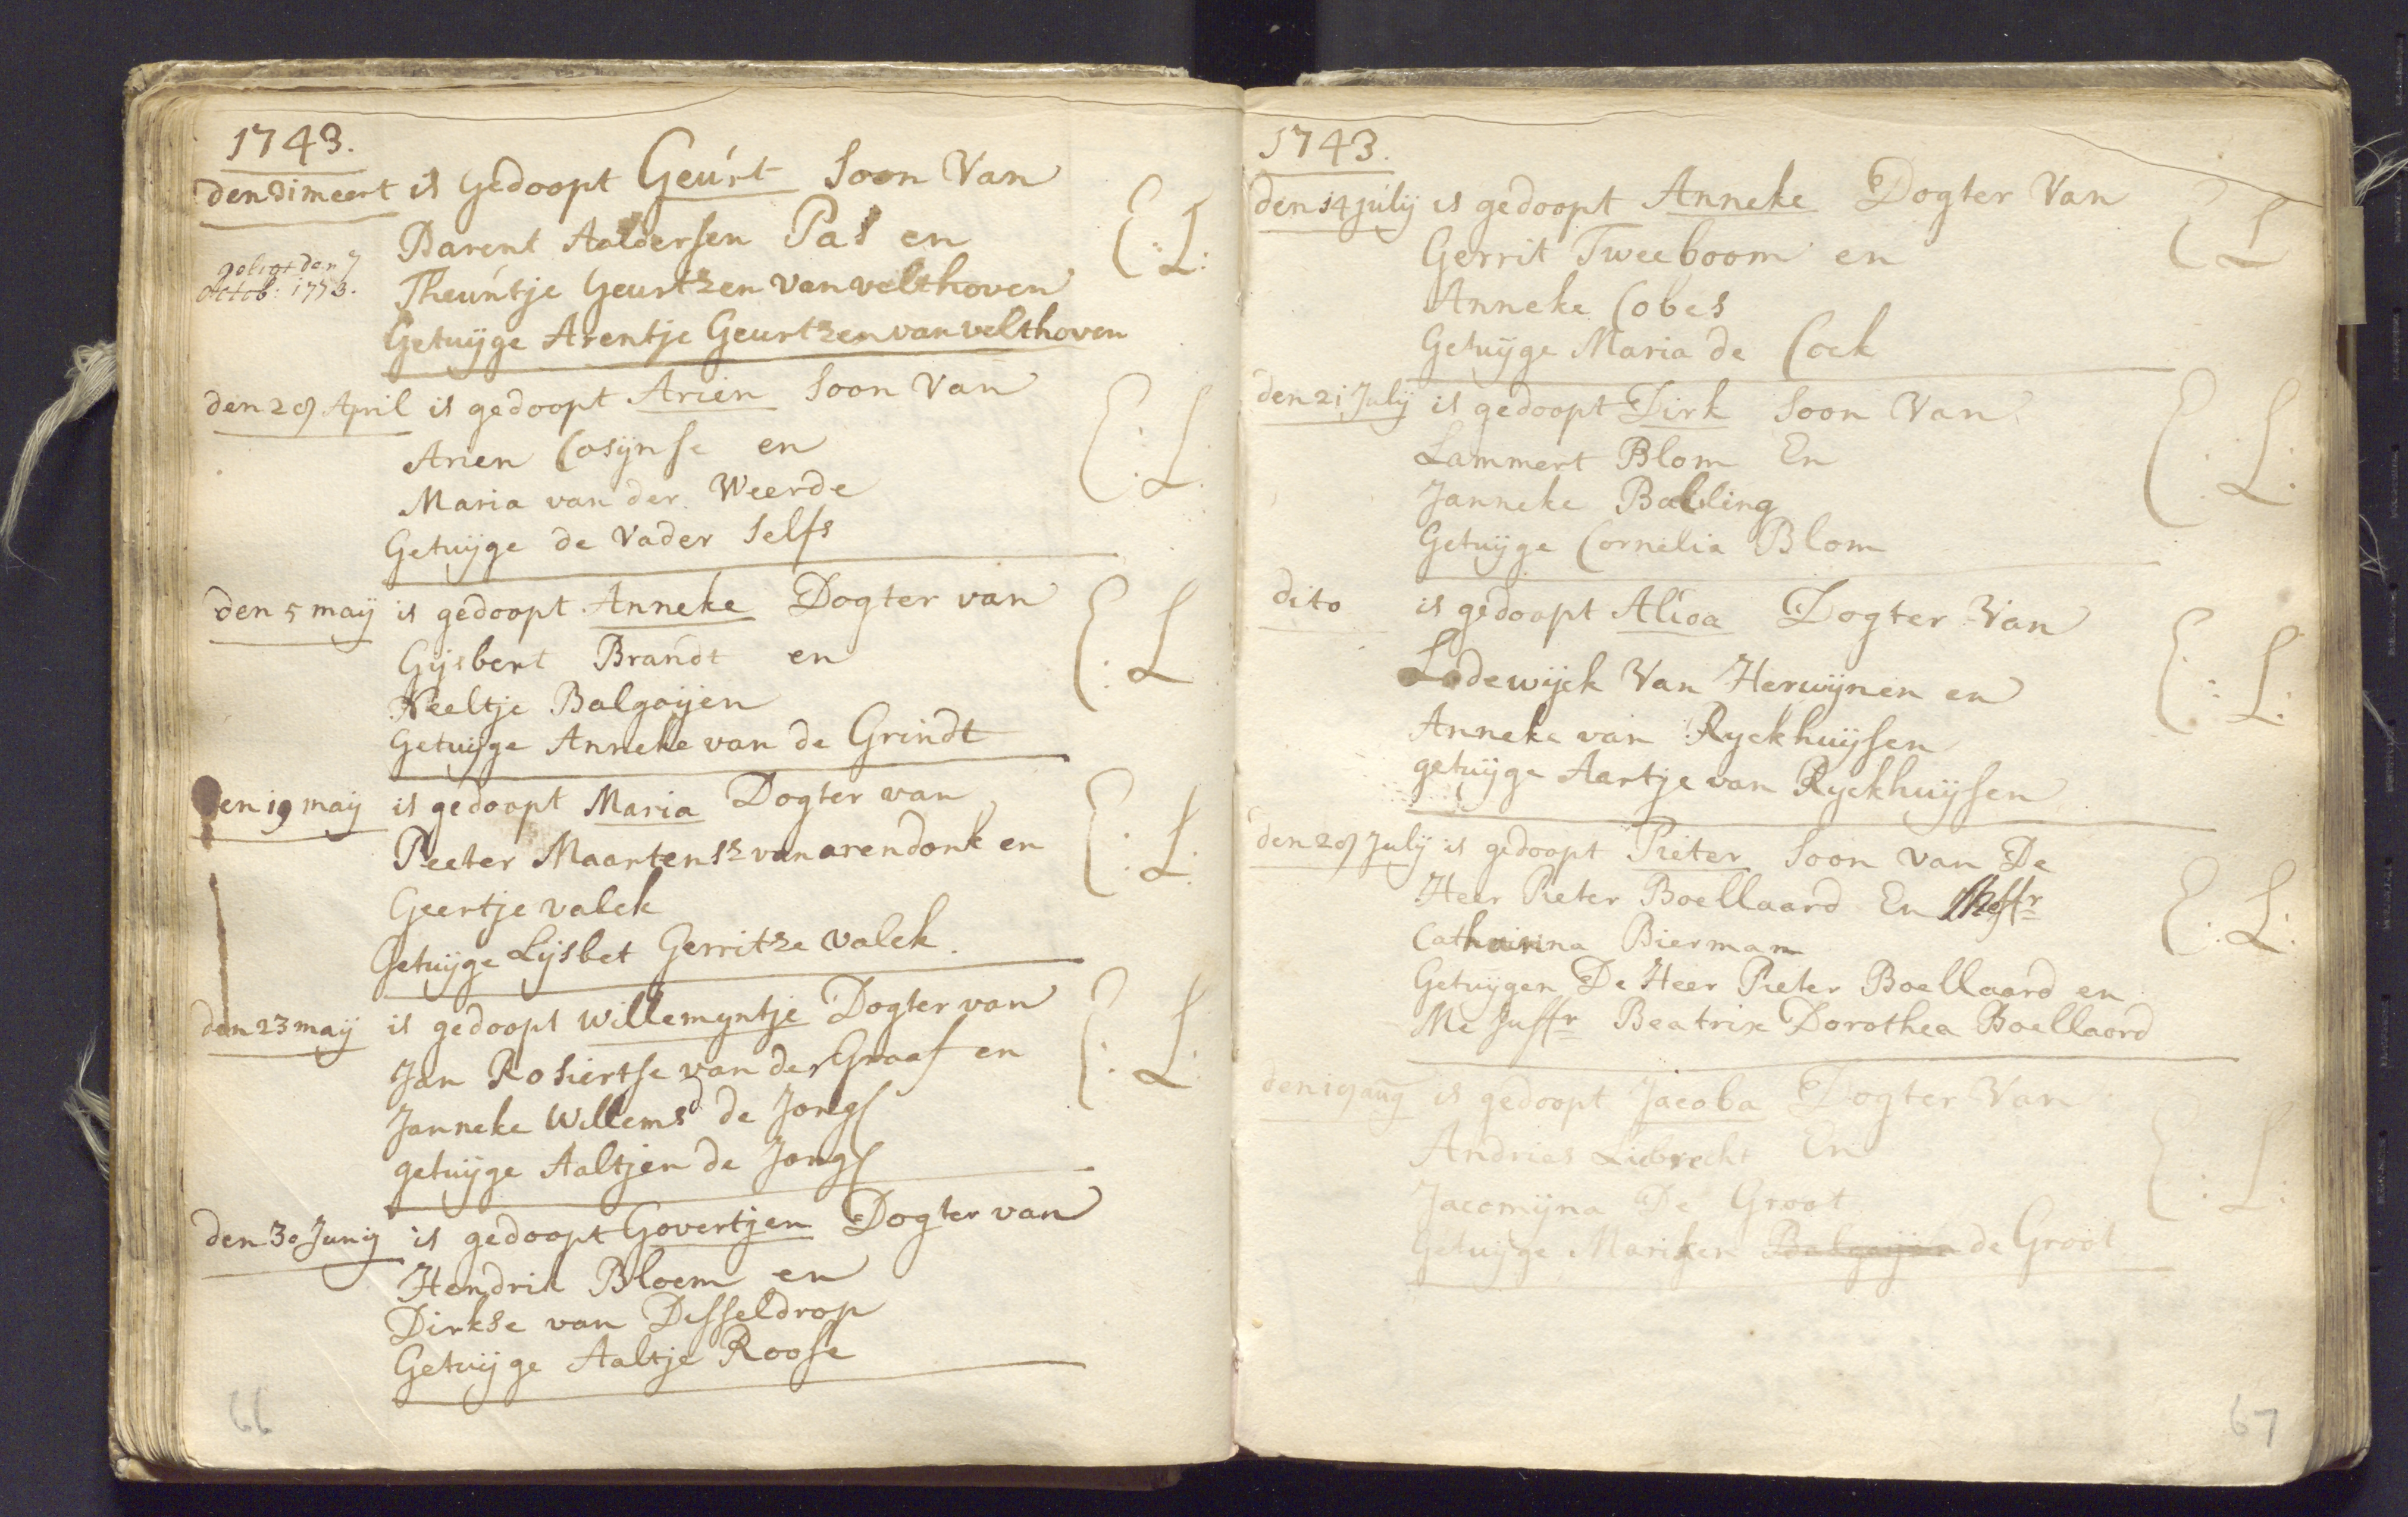 1743.
den 31 meert is Gedoopt Geurt Soon Van
Barent Aaldersen Pas en
Theuntje Geurtzen van velthoven
Getuijge Arentje Geurtzen van velthoven
octob: 1753.
E:L:
den 28 April is gedoopt Arien Soon Van
Arien Cosijnse en
Maria van der Weerde
Getuijge de Vader Selfs
E:L:
den 5 maij is gedoopt Anneke Dogter van
Gijsbert Brandt en
Neeltje Balgoijen
Getuijge Anneke van de Grindt
E:L
den 19 maij is gedoopt Maria Dogter van
Peeter Maartensz van arendonk en
Geertje valck
Getuijge Lijsbet Gerritze valck.
E:L:
den 23 maij is gedoopt Willemyntje Dogter van
Jan Rosiertse van der Graaf en
Janneke Willemsd de Jong
getuijge Aaltjen de Jong
E:L:
den 30 Junij is gedoopt Govertjen Dogter van
Hendrik Bloem en
Dirkse van Desseldrop
Getuijge Aaltje Roose
66
1743.
den 14 julij is gedoopt Anneke Dogter Van
Gerrit Tweeboom en
Anneke Cobes
Getuijge Maria de Cock
E L
den 21 Julij is gedoopt Dirk Soon Van
Lammert Blom En
Janneke Balling
Getuijge Cornelia Blom
E:L:
dito is gedoopt Alida Dogter Van
Lodewijck Van Herwijnen en
Anneke van Ryckhuijsen
getuijge Aartje van Ryckhuijsen
E:L:
den 28 July is gedoopt Pieter Soon van De
Heer Pieter Boellaard En Meffr
Catharina Bierman
Getuijgen De Heer Pieter Boellaard en
Me Juffr Beatrix Dorothea Boellaard
E:L:
den 19 aug is gedoopt Jacoba Dogter Van
Andries Liebrecht En
Jacomijna De Groot
Getuijge Mariken Balgoijen de Groot
E:L:
67